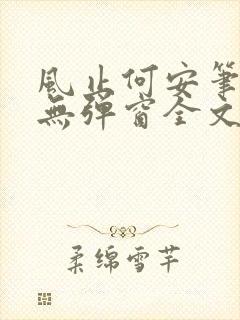 風止何安筆
無彈窗全文
柔绵雪芊